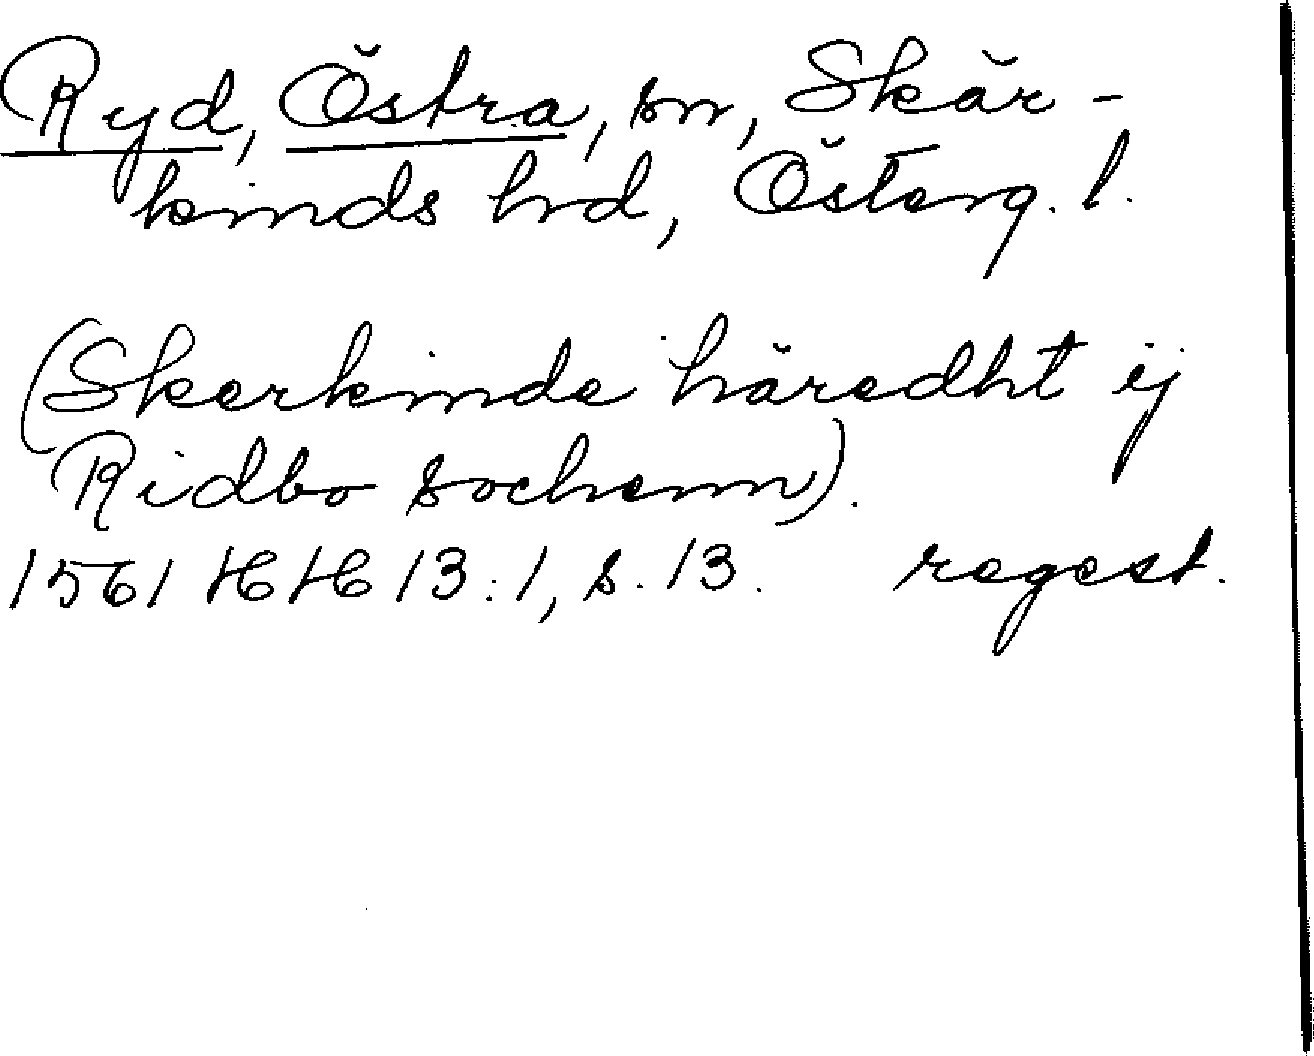 Ryd, Östra, sn, Skär-
kinds hrd, Österg. l.
(Skerkinde häredht ij
Ridbo sochenn).
1561 HH 13:1, s. 13. regest.